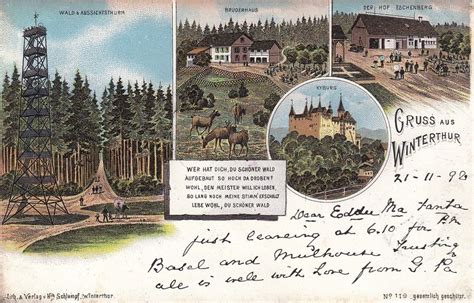 WALD & AUSSICHTSTHURM.
BRUDERHAUS
DER HOF ESCHENBERG.
KYBURG
GRUSS AUS
WINTERTHUR
21-11-98
WER HAT DICH, DU SCHÖNER WALD
AUFGEBAUT SO HOCH DA DROBEN?
WOHL, DEN MEISTER WILL ICH LOBEN,
SO LANG NOCH MEINE STIMM' ERSCHALLT
LEBE WOHL, DU SCHÖNER WALD
Dear Eddie Ma
just leaving at 6.10 for
Basel and Mulhouse Trusting
all is well with Love from G. Pa
Lith. & Verlag v. Schlumpf, Winterthur.
No 119. gesetzlich geschützt.